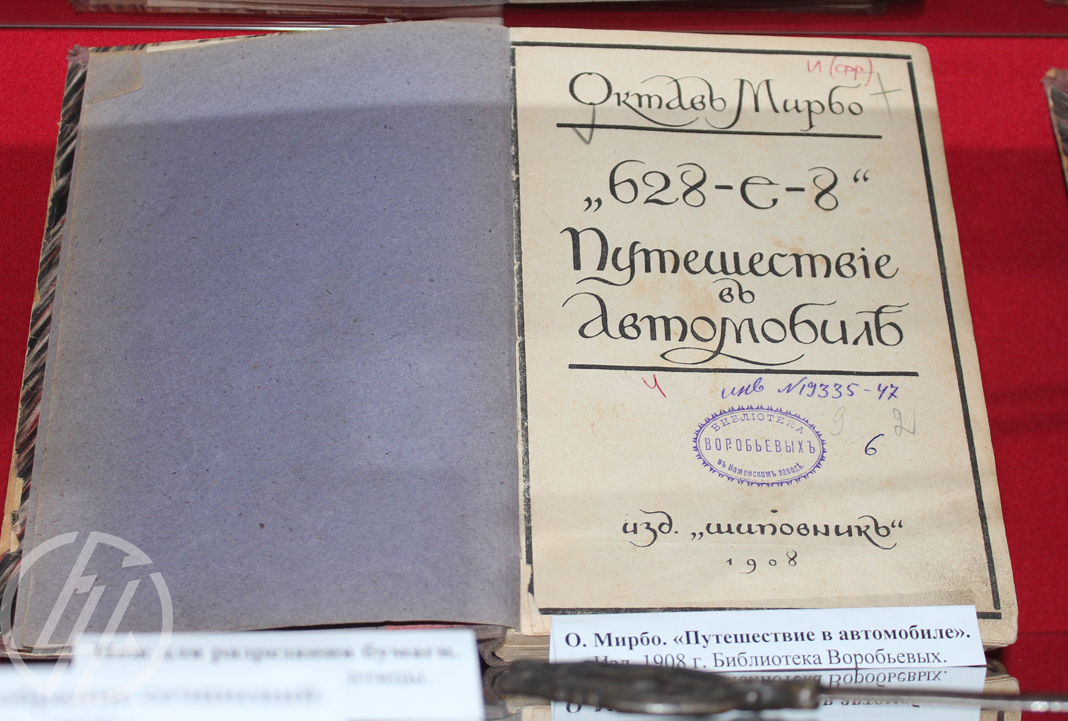 И (фр)
Октавъ Мирбо
„628-е-8“
Путешествіе
въ
Автомобилѣ
инв №19335-47
БИБЛІОТЕКА
ВОРОБЬЕВЫХЪ
въ Каменскомъ заводѣ.
6
изд. „шиповникъ“
1908
О. Мирбо. «Путешествие в автомобиле».
Изд. 1908 г. Библиотека Воробьевых.
для разрезания бумаги.